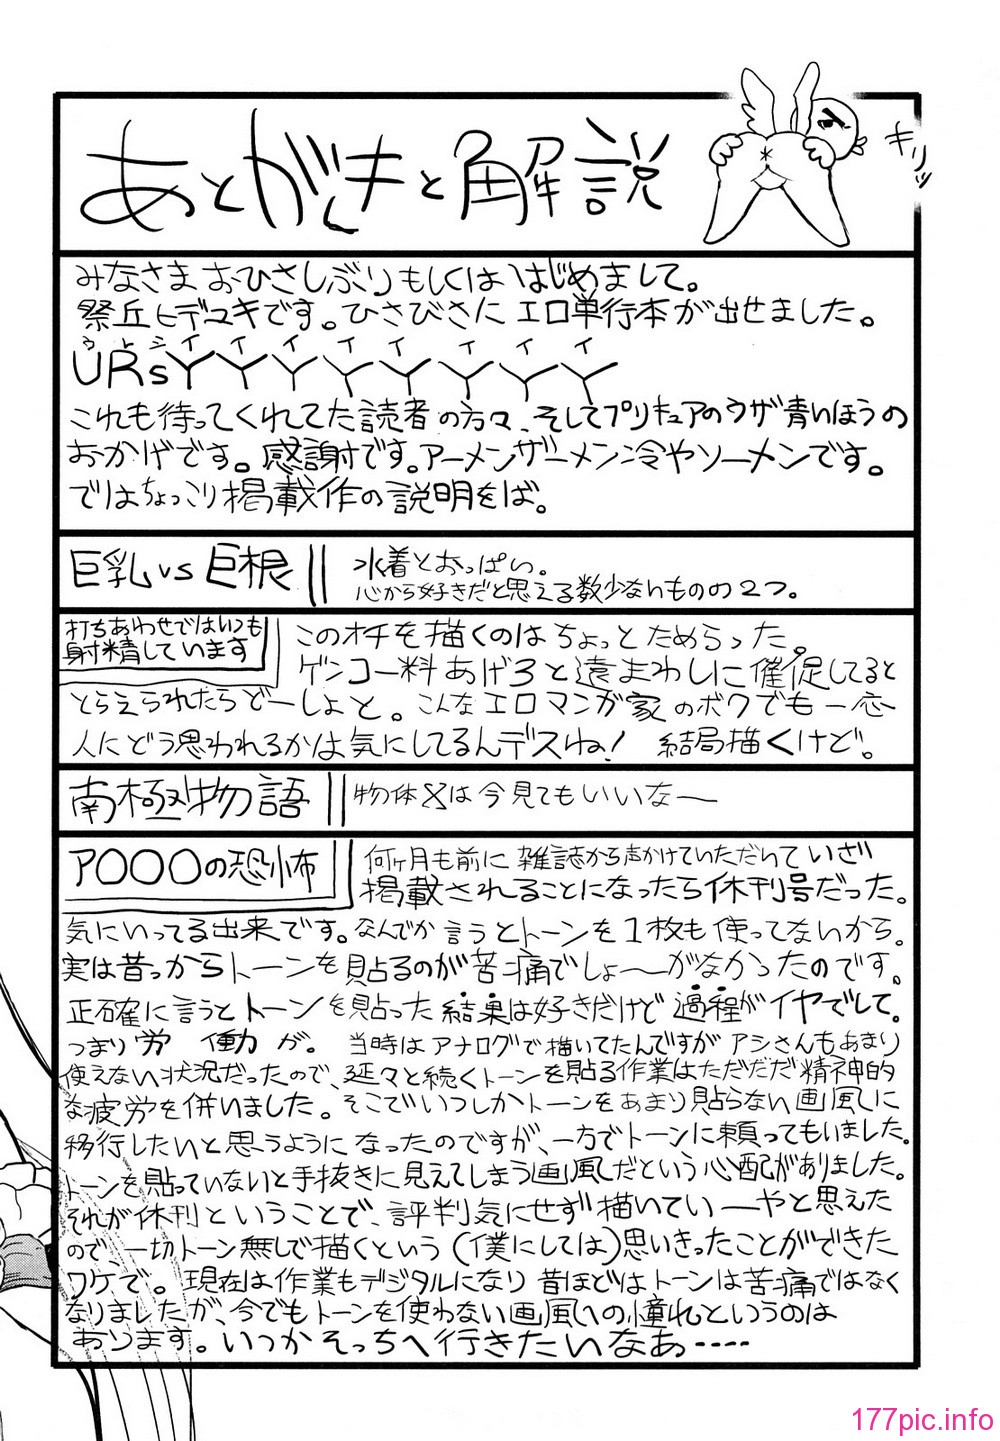 あとがきと解説
キリッ
みなさまおひさしぶりもしくははじめまして。
祭丘ヒデユキです。ひさびさにエロ単行本が出せました。
ウレシイイイイイイイイ
URsYYYYYYYY
これも待ってくれてた読者の方々、そしてプリキュアのウザ青いほうの
おかげです。感謝です。アーメンザーメン冷やソーメンです。
ではちょっこり掲載作の説明をば。
巨乳vs巨根
水着とおっぱい。
心から好きだと思える数少ないものの2つ。
打ちあわせではいつも
射精しています
このオチを描くのはちょっとためらった。
ゲンコー料あげろと遠まわしに催促してると
とらえられたらどーしよと。こんなエロマンガ家のボクでも一応
人にどう思われるかは気にしてるんデスね! 結局描くけど。
南極物語
物体Xは今見てもいいなー
ア〇〇〇の恐怖
何ヶ月も前に雑誌から声かけていただいていざ
掲載されることになったら休刊号だった。
気にいってる出来です。なんでか言うとトーンを1枚も使ってないから。
実は昔っからトーンを貼るのが苦痛でしょ〜がなかったのです。
正確に言うとトーンを貼った結果は好きだけど過程がイヤでして。
つまり労働が。当時はアナログで描いてたんですがアシさんもあまり
使えない状況だったので、延々と続くトーンを貼る作業はただただ精神的
な疲労を併いました。そこでいつしかトーンをあまり貼らない画風に
移行したいと思うようになったのですが、一方でトーンに頼ってもいました。
トーンを貼っていないと手抜きに見えてしまう画風だという心配がありました。
それが休刊ということで、評判気にせず描いていーやと思えた
ので一切トーン無しで描くという(僕にしては)思いきったことができた
ワケで。現在は作業もデジタルになり昔ほどはトーンは苦痛ではなく
なりましたが、今でもトーンを使わない画風への憧れというのは
あります。いつかそっちへ行きたいなあ‥‥
177pic.info